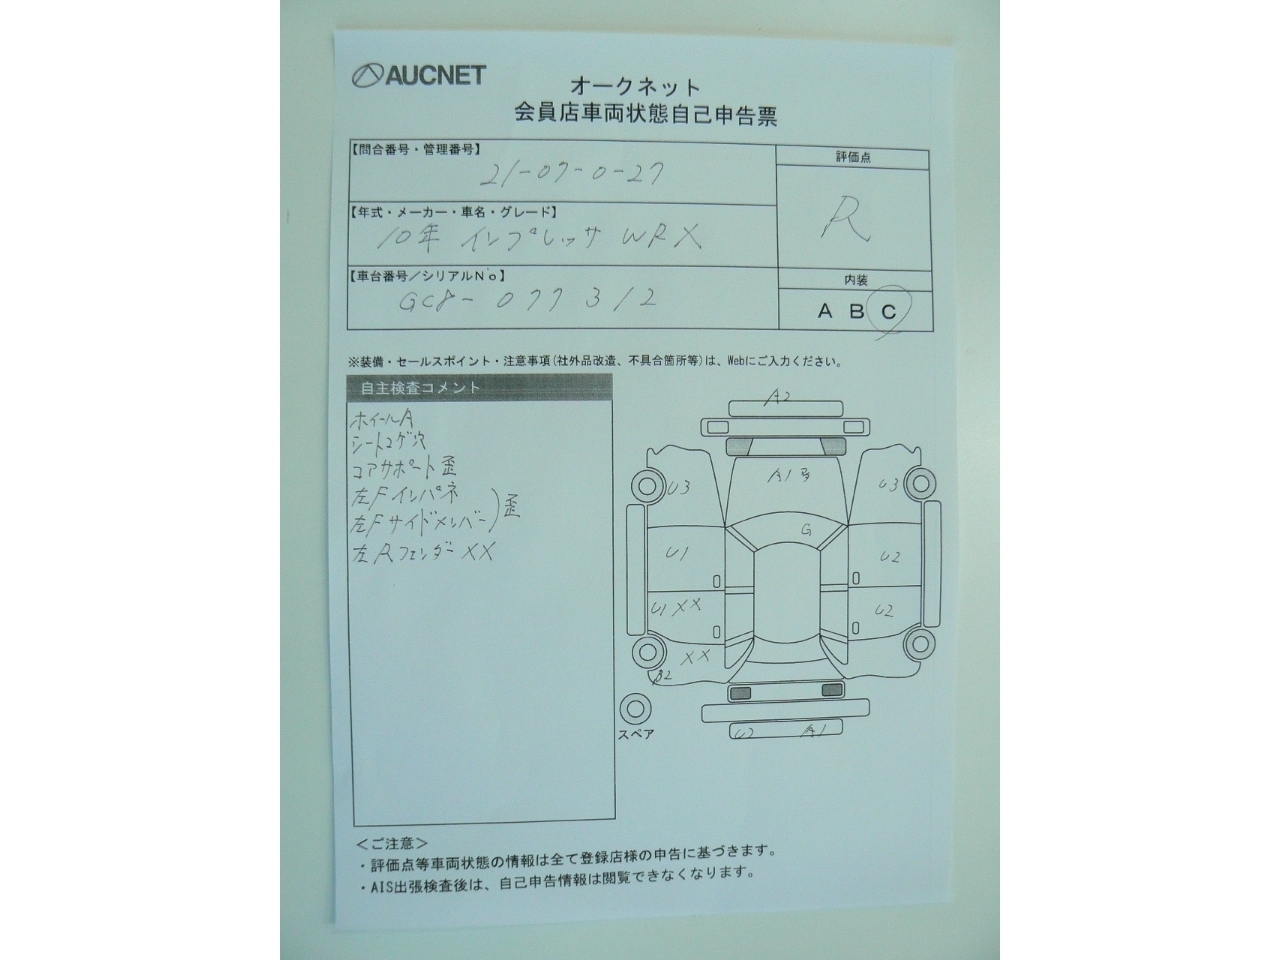 AUCNET
オークネット
会員店車両状態自己申告票
【問合番号・管理番号】
21-07-0-27
評価点
R
【年式・メーカー・車名・グレード】
10年 インプレッサ WRX
【車台番号／シリアルNo】
GC8-077312
内装
A B C
※装備・セールスポイント・注意事項(社外品改造、不具合箇所等)は、Webにご入力ください。
自主検査コメント
ホイールA
シートコゲ穴
コアサポート歪
左Fインパネ
左Fサイドメンバー)歪
左Rフェンダー XX
A2
U3
A1
U3
G
U1
U2
U1 XX
U2
XX
B2
スペア
U2
A1
＜ご注意＞
・評価点等車両状態の情報は全て登録店様の申告に基づきます。
・AIS出張検査後は、自己申告情報は閲覧できなくなります。